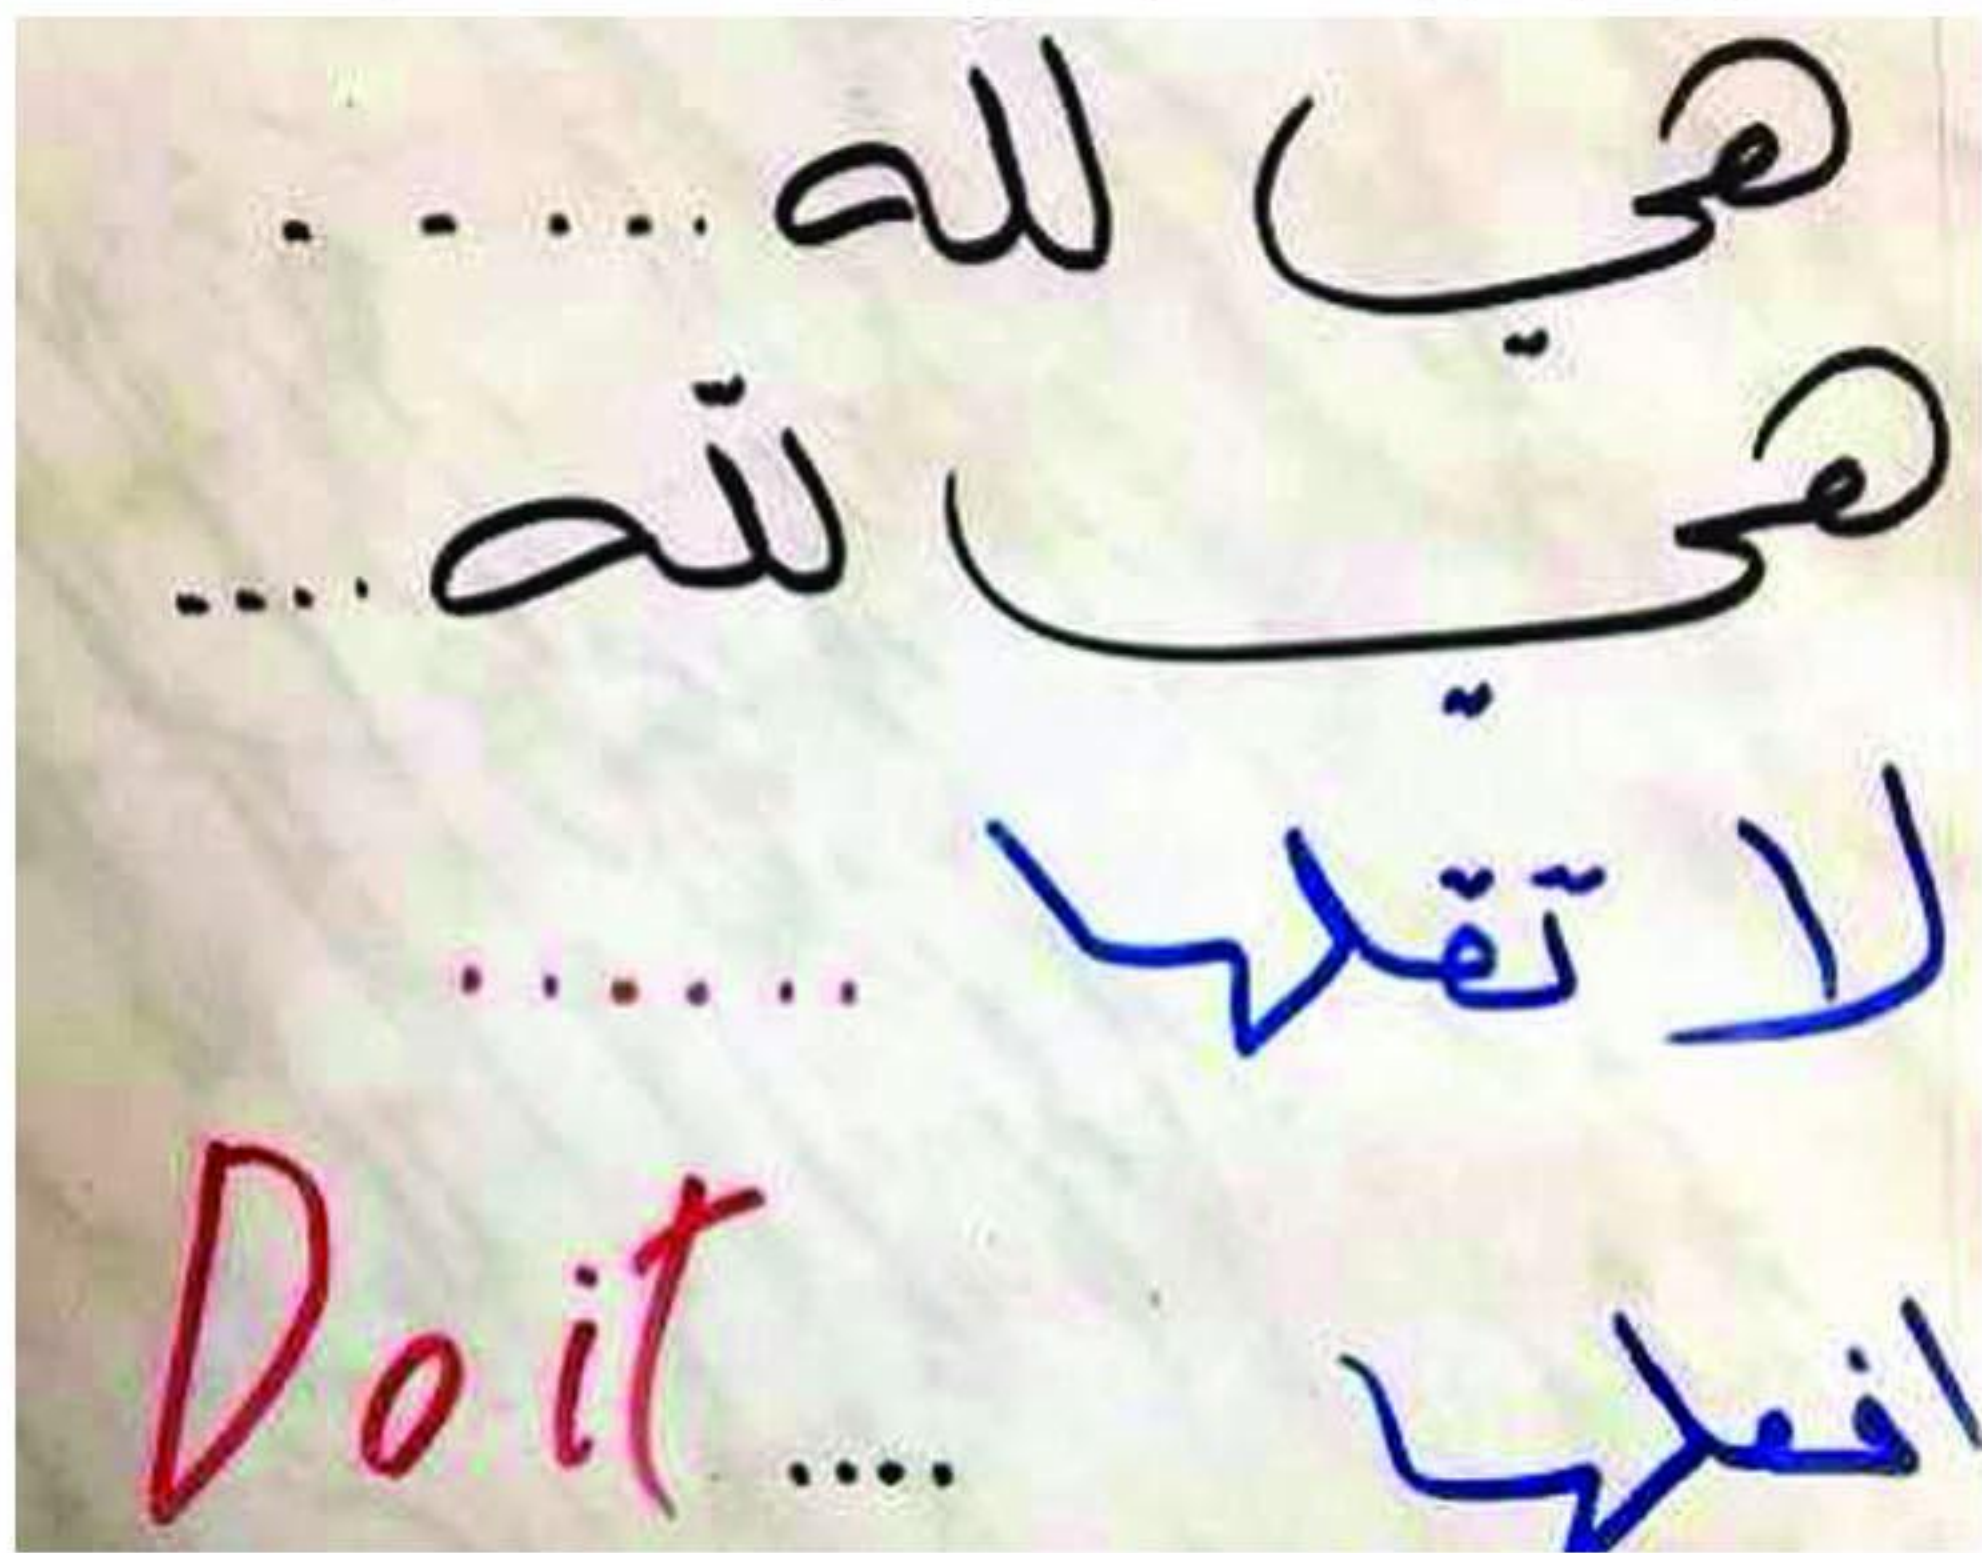 هي لله .....
هي للّه ....
لا تقلها ......
افعلها .... Do it